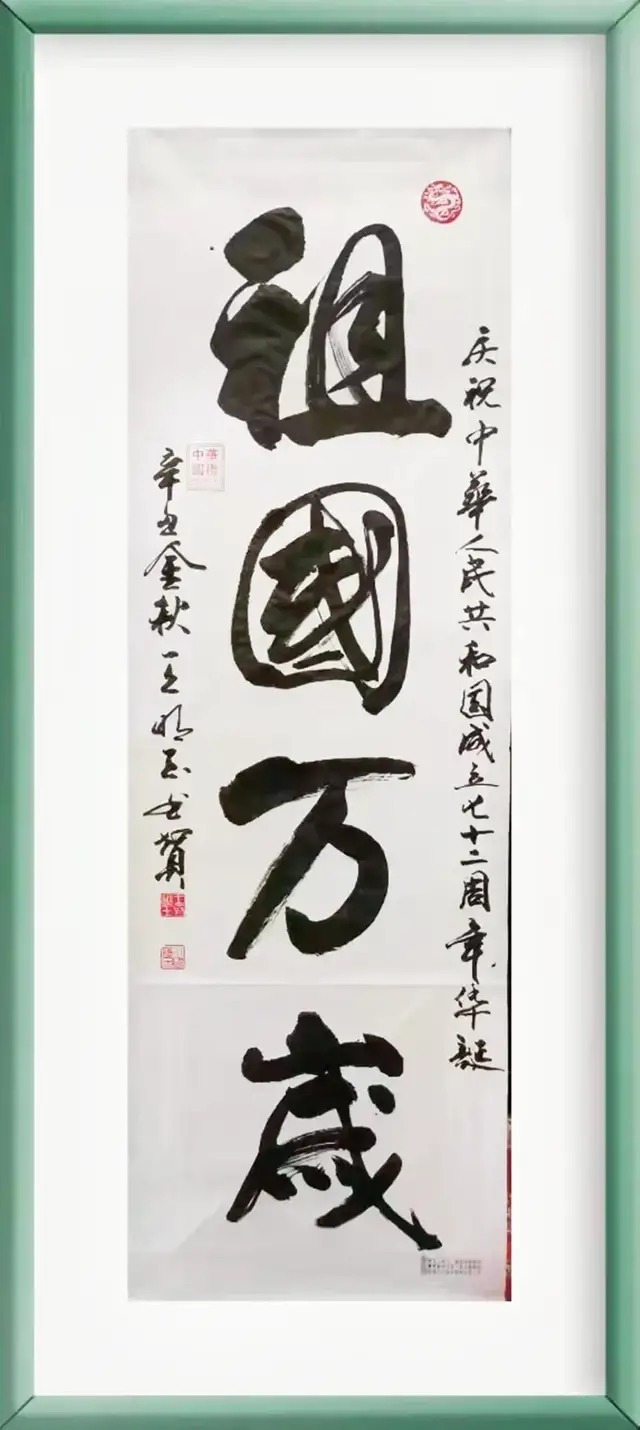 庆祝中華人民共和国成立七十二周年华誕
祖國万歲
辛丑金秋 王明玉书贺